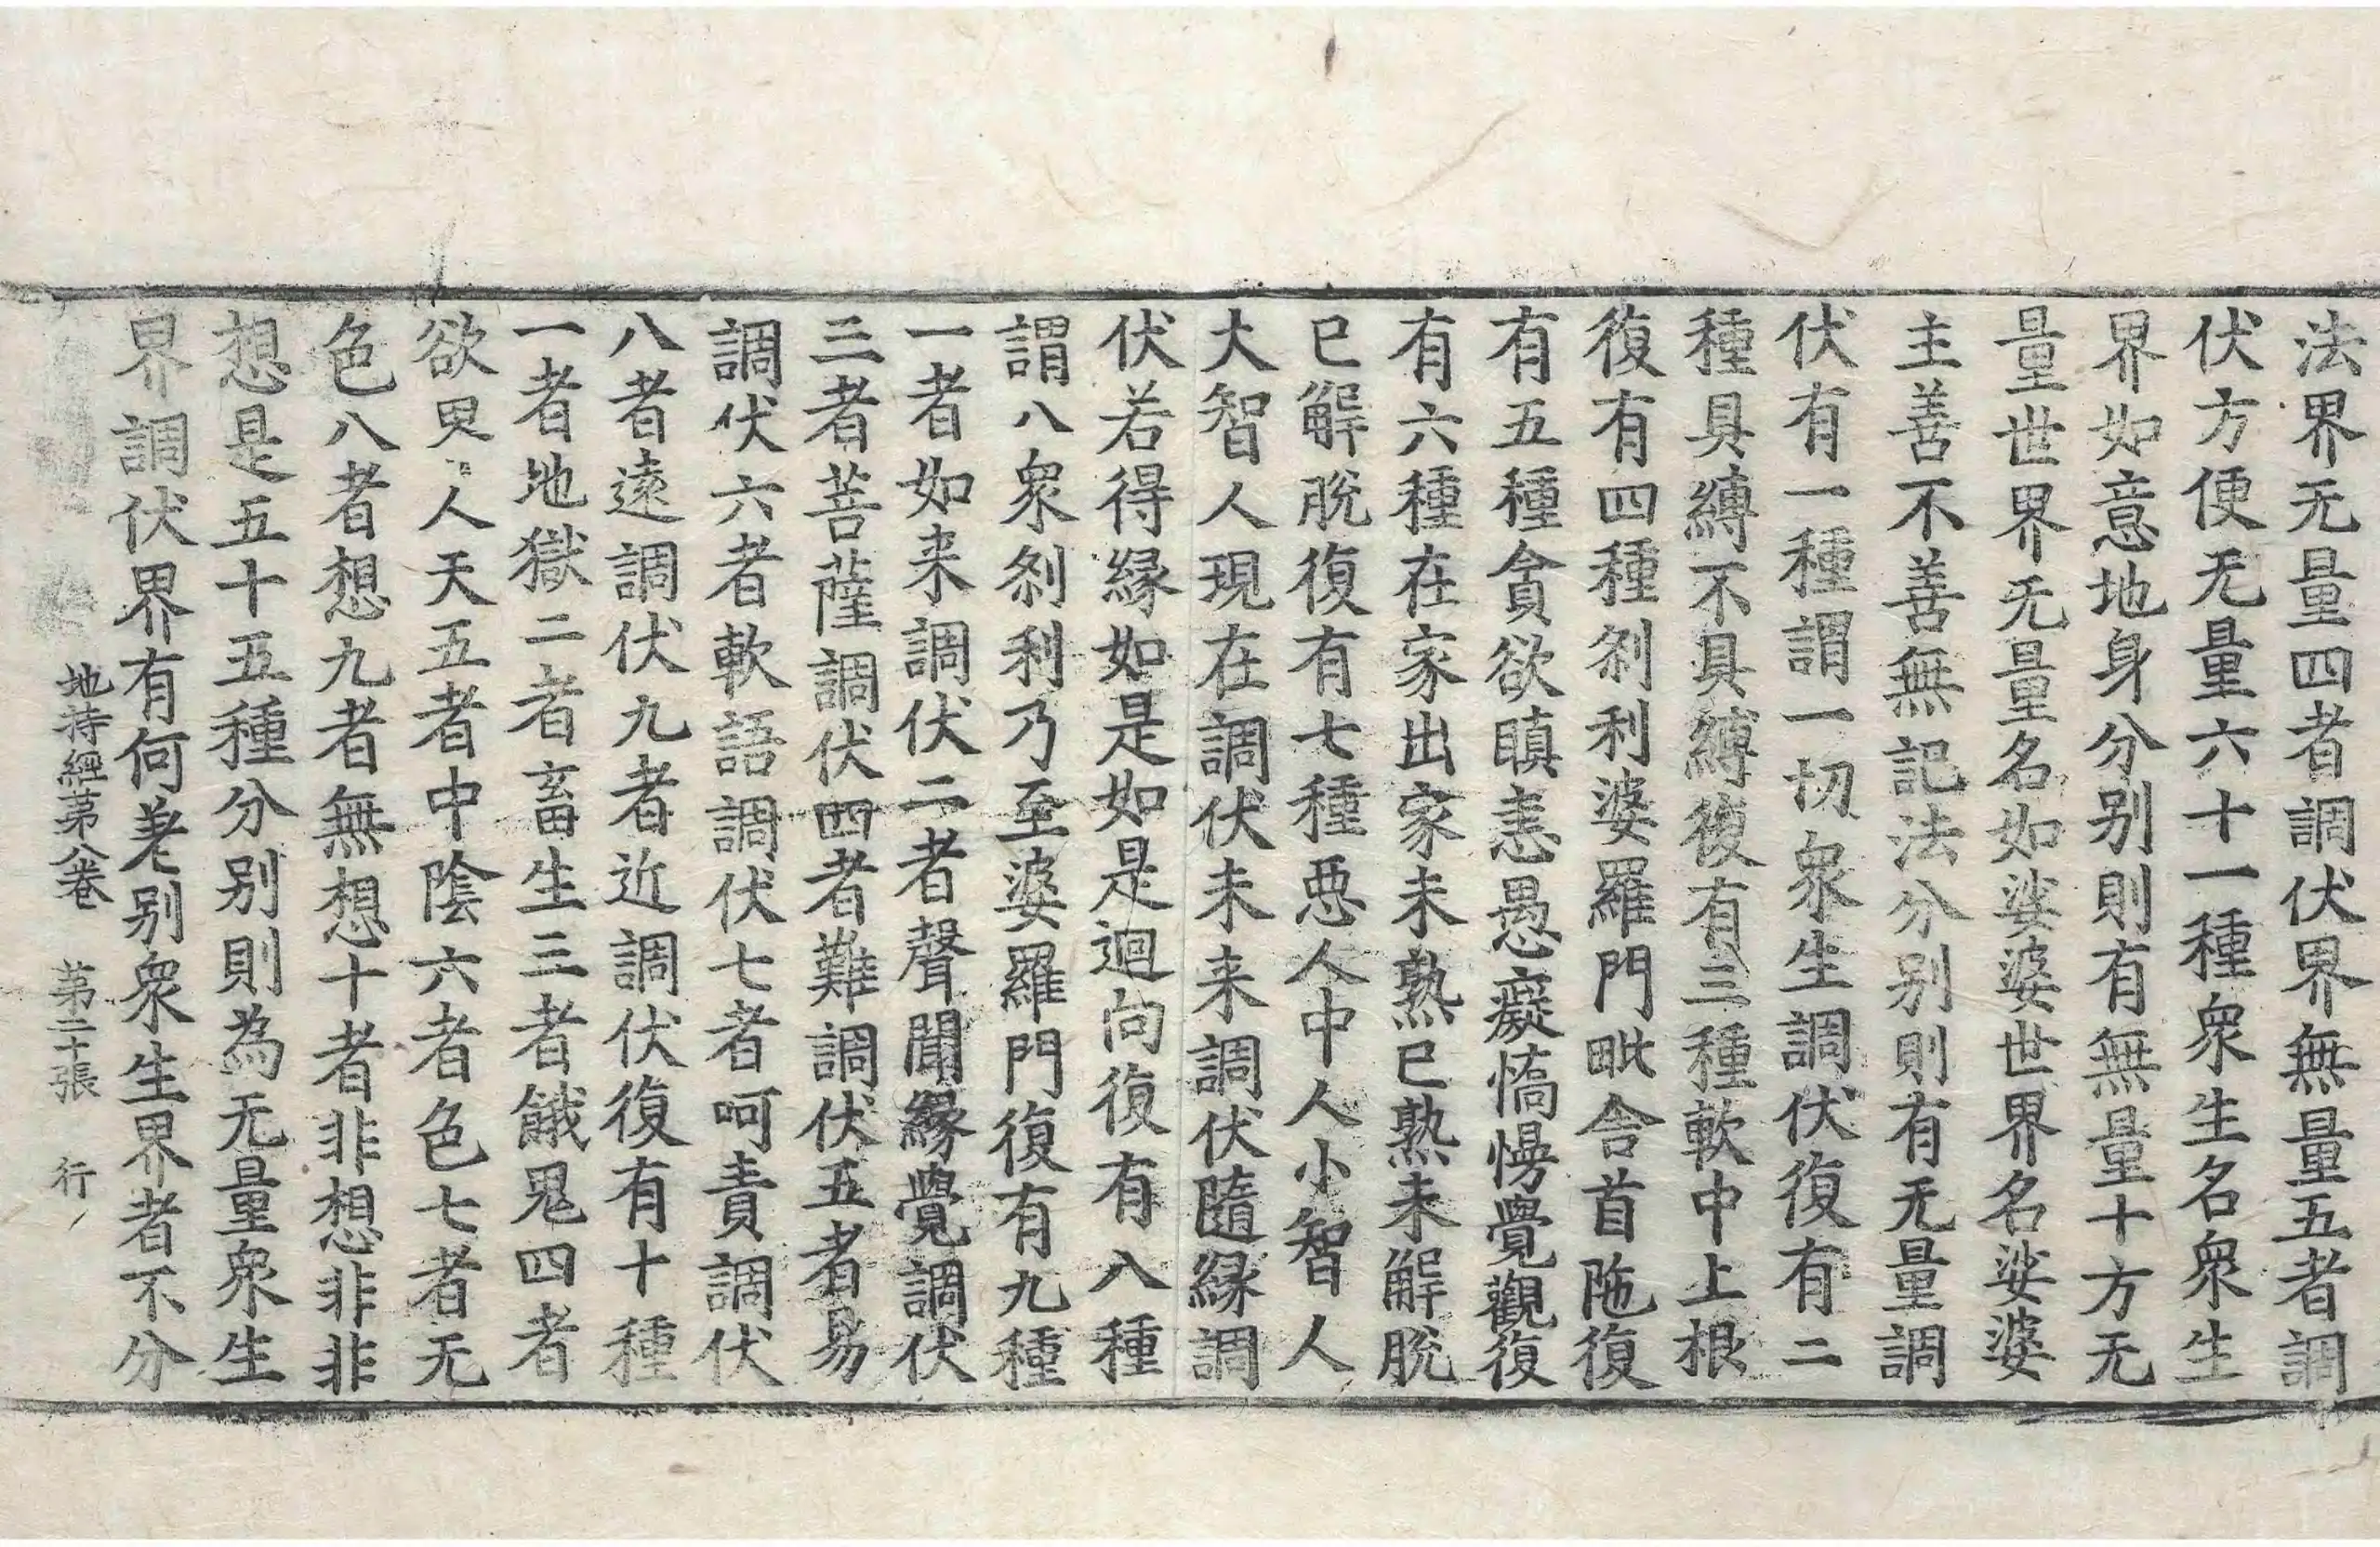 法界无量四者調伏界無量五者調
伏方便无量六十一種衆生名衆生
界如意地身分别則有無量十方无
量世界无量名如娑婆世界名娑婆
主善不善無記法分别則有无量調
伏有一種謂一切衆生調伏復有二
種具縛不具縛復有三種軟中上根
復有四種刹利婆羅門毗舍首陁復
有五種貪欲瞋恚愚癡憍慢覺觀復
有六種在家出家未熟已熟未解脫
已解脫復有七種惡人中人小智人
大智人現在調伏未来調伏隨緣調
伏若得緣如是如是迴向復有八種
謂八衆刹利乃至婆羅門復有九種
一者如来調伏二者聲聞緣覺調伏
三者菩薩調伏四者難調伏五者易
調伏六者軟語調伏七者呵責調伏
八者遠調伏九者近調伏復有十種
一者地獄二者畜生三者餓鬼四者
欲界人天五者中陰六者色七者无
色八者想九者無想十者非想非非
想是五十五種分别則為无量衆生
界調伏界有何差别衆生界者不分
地持經第八卷　第二十張　行